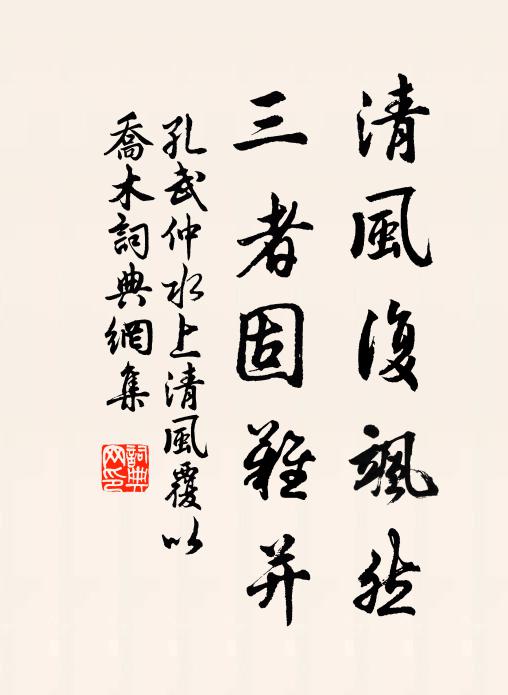 清風復颯然
三者固難并
孔武仲水上清風覆以
喬木詞典網集
詞典
网印